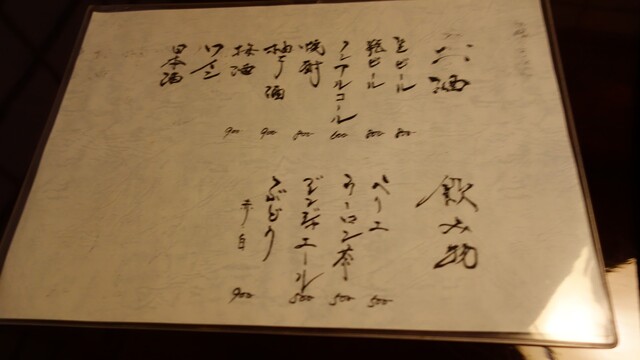 お酒
生ビール 800
瓶ビール 800
ノンアルコール 600
焼酎 800
柚子酒 900
梅酒 900
ワイン
日本酒
飲み物
ペリエ 500
ウーロン茶 500
ジンジャエール 500
ぶどう
赤・白 900